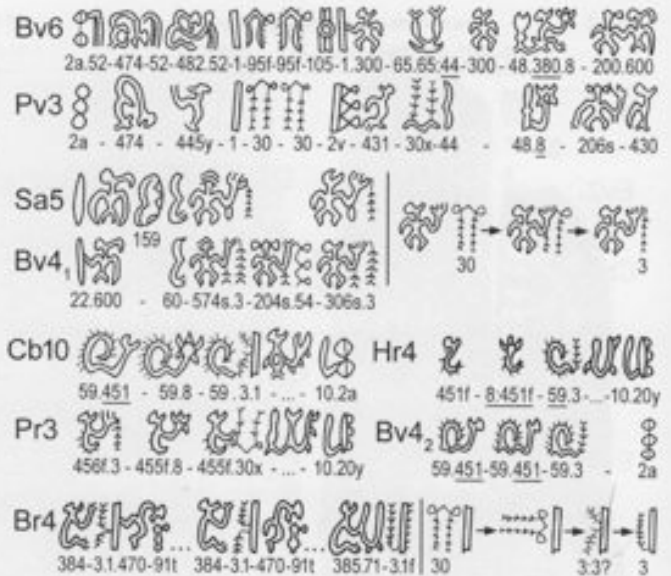 Bv6
2a.52-474-52-482.52-1-95f-95f-105-1.300-65.65:44-300-48.380.8-200.600
Pv3
2a - 474 - 445y - 1 - 30 - 30 - 2v - 431 - 30x-44 - 48.8 - 206s - 430
Sa5
159
30 3
Bv4₁
22.600 - 60-574s.3-204s.54-306s.3
Cb10 Hr4
59.451 - 59.8 - 59.3.1 - ... - 10.2a 451f - 8:451f - 59.3-...-10.20y
Pr3 Bv4₂
456f.3 - 455f.8 - 455f.30x - ... - 10.20y 59.451-59.451-59.3 - 2a
Br4
384-3.1.470-91t ... 384-3.1-470-91t ... 385.71-3.1f 30 3:3? 3